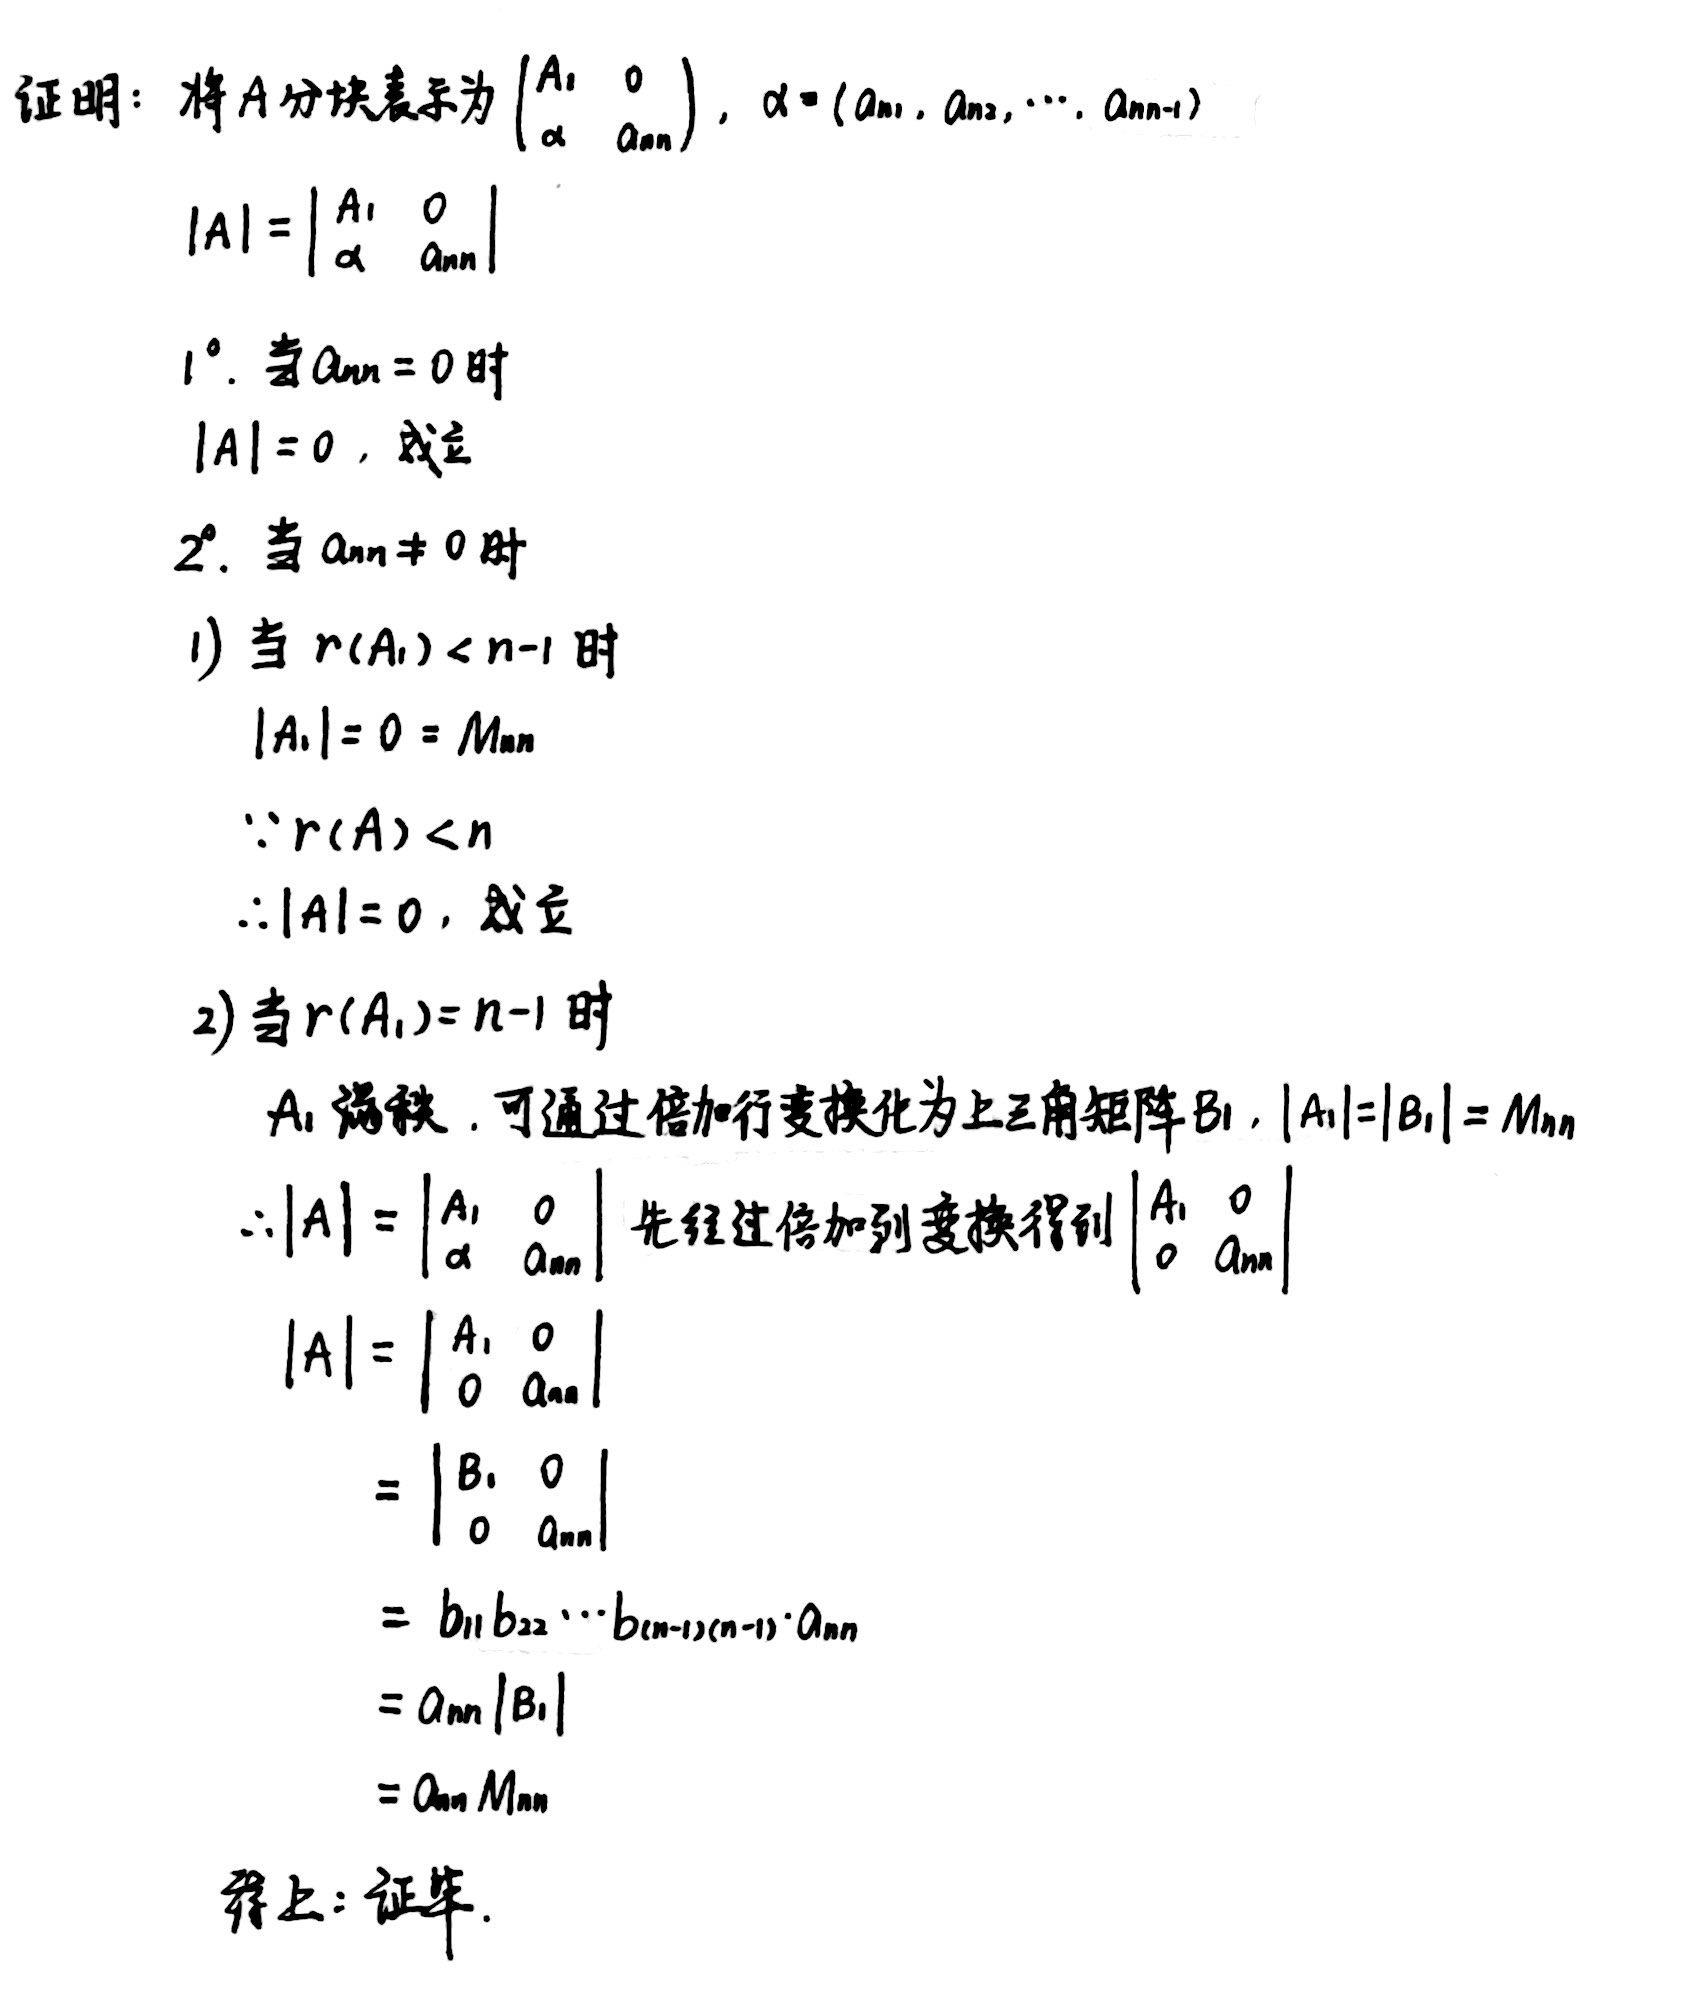 证明：将A分块表示为 (A₁ 0
α aₙₙ)，α=(aₙ₁, aₙ₂, ⋯, aₙₙ₋₁)
|A|=|A₁ 0
α aₙₙ|
1°. 当aₙₙ=0时
|A|=0，成立
2°. 当aₙₙ≠0时
1) 当 r(A₁)<n-1 时
|A₁|=0=Mₙₙ
∵r(A)<n
∴|A|=0，成立
2) 当r(A₁)=n-1 时
A₁满秩.可通过倍加行变换化为上三角矩阵B₁，|A₁|=|B₁|=Mₙₙ
∴|A|=|A₁ 0
α aₙₙ| 先经过倍加列变换得到 |A₁ 0
0 aₙₙ|
|A|=|A₁ 0
0 aₙₙ|
=|B₁ 0
0 aₙₙ|
=b₁₁b₂₂⋯b₍ₙ₋₁₎₍ₙ₋₁₎·aₙₙ
=aₙₙ|B₁|
=aₙₙMₙₙ
综上：证毕.